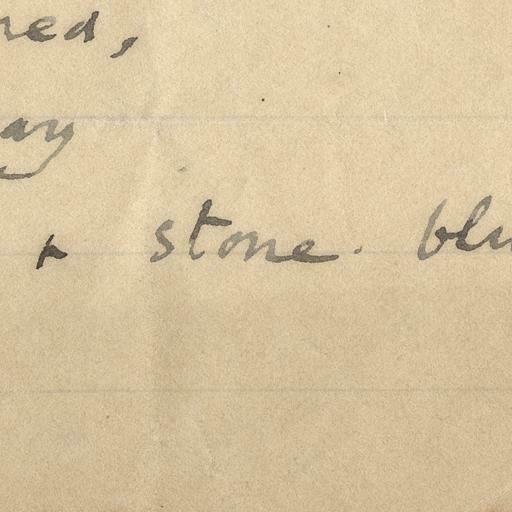 red,
ay
+ stone. blu